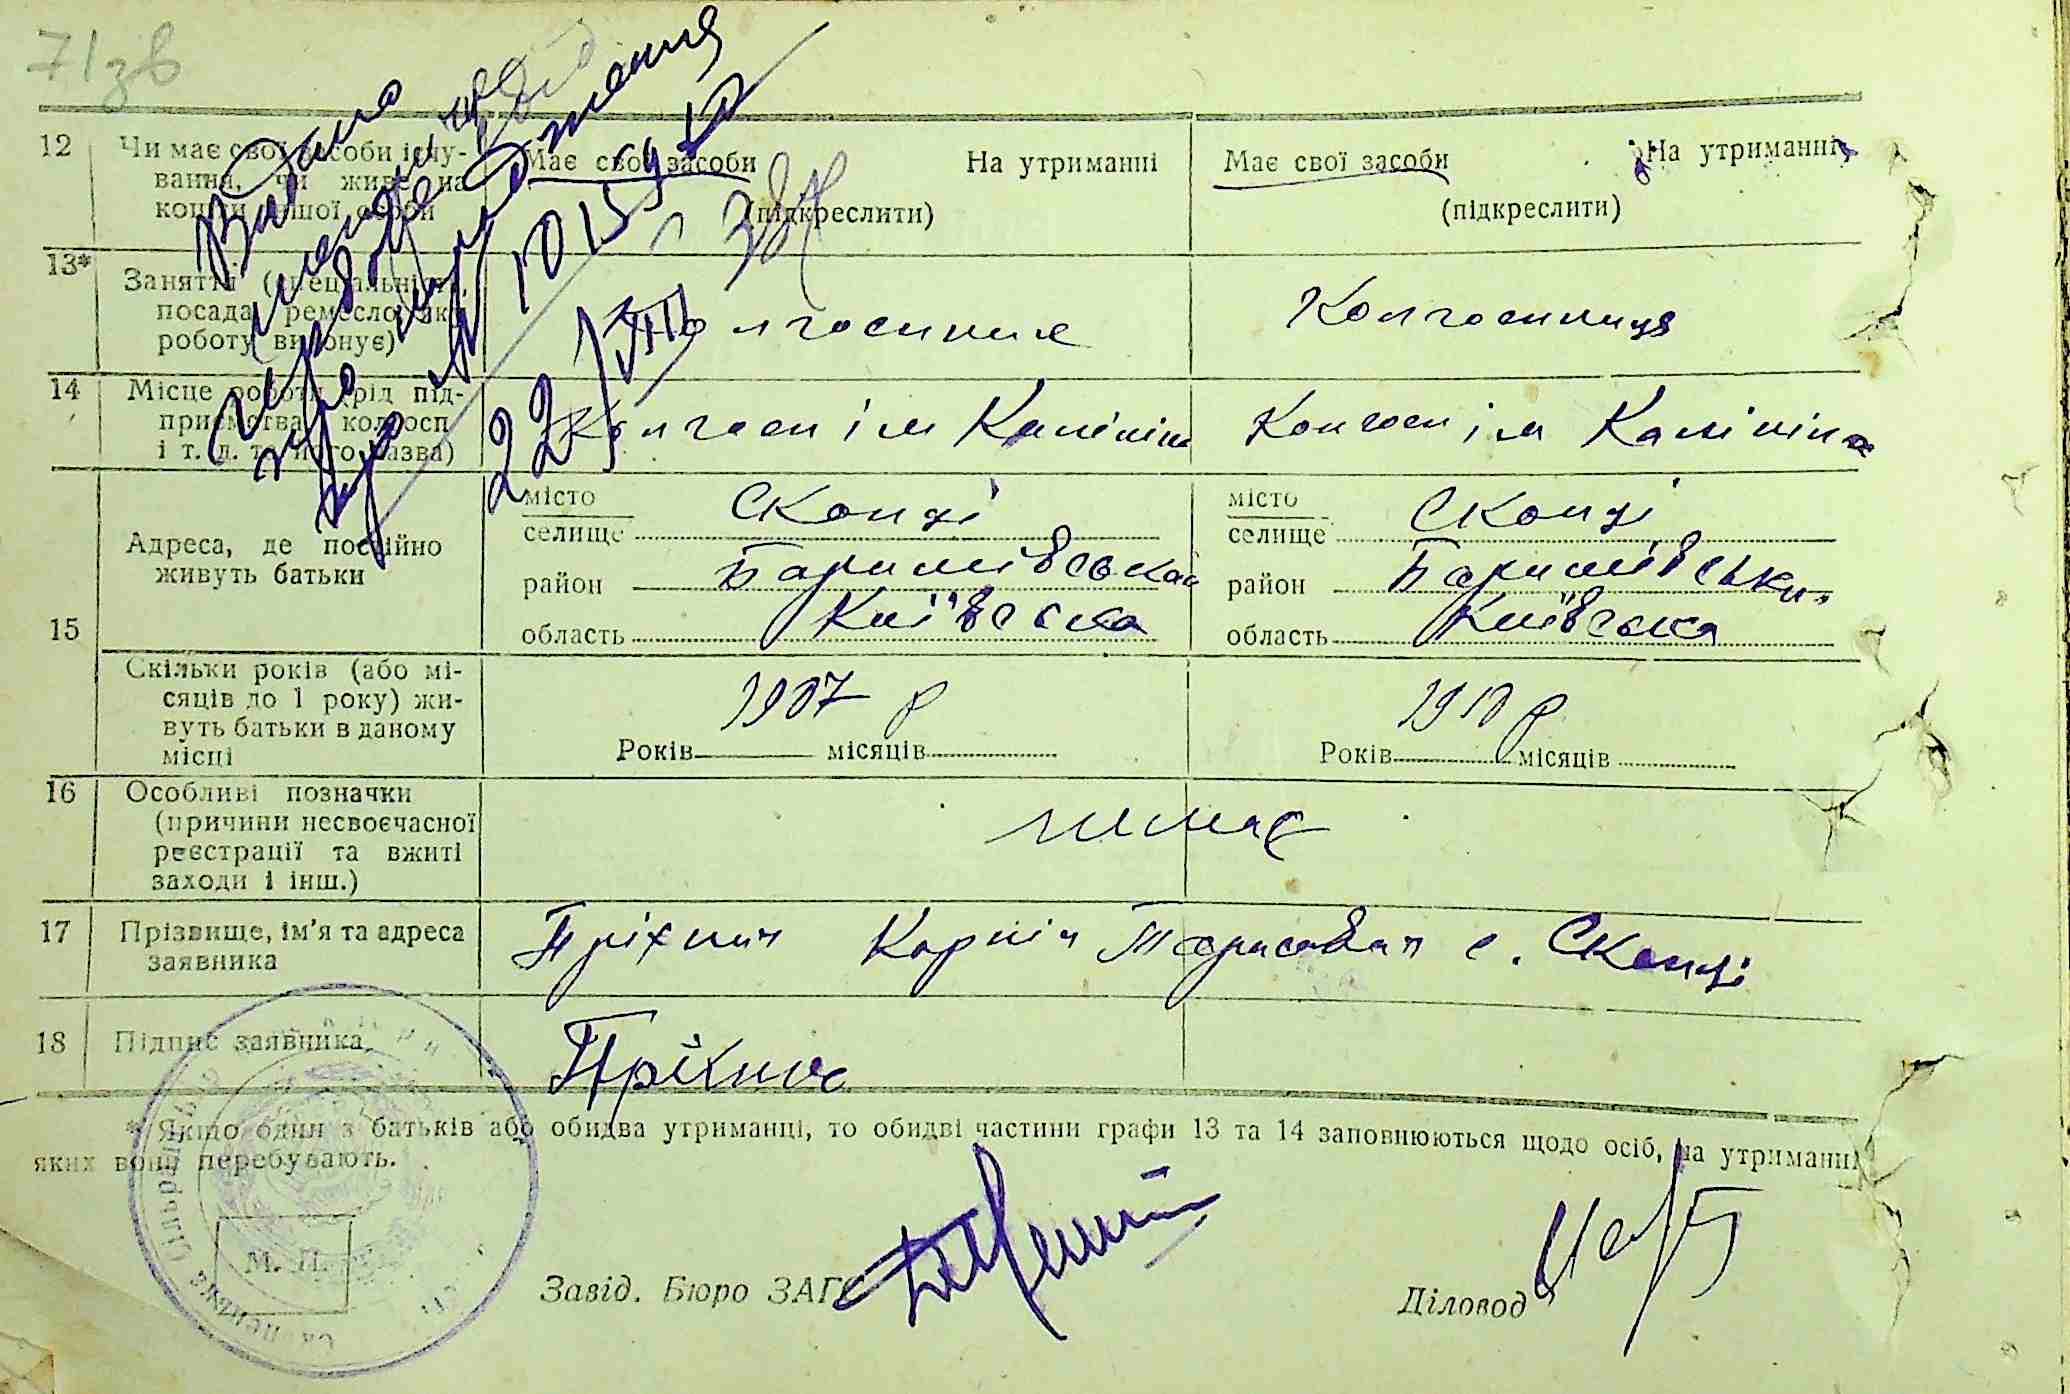 71зв
12 Чи має свої засоби існу-
вання, чи живе на
кошти іншої особи
Має свої засоби На утриманні
(підкреслити)
Має свої засоби На утриманні
(підкреслити)
13* Заняття (спеціальність,
посада, ремесло, яку
роботу виконує)
Колгоспник
Колгоспниця
14 Місце роботи (рід під-
приємства, колгосп
і т. д. та його назва)
Колгосп ім Калініна
Колгосп ім Калініна
15 Адреса, де постійно
живуть батьки
місто
селище Скопці
район Баришівський
область Київська
місто
селище Скопці
район Баришівськи
область Київська
Скільки років (або мі-
сяців до 1 року) жи-
вуть батьки в даному
місці
1907 р
Років місяців
1910 р
Років місяців
16 Особливі позначки
(причини несвоєчасної
реєстрації та вжиті
заходи і інш.)
немає
17 Прізвище, ім’я та адреса
заявника
Карпій Тарасович с. Скопці
18 Підпис заявника
* Якщо один з батьків або обидва утриманці, то обидві частини графи 13 та 14 заповнюються щодо осіб, на утриманні
яких вони перебувають.
М. П.
Завід. Бюро ЗАГС
Діловод
Видано
22/VIII